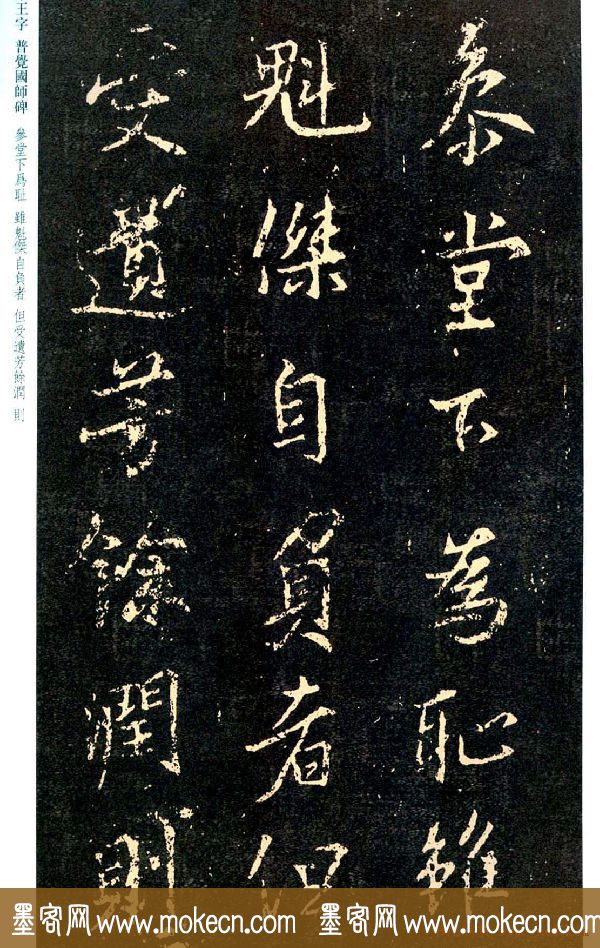 王字 普覺國師碑 參堂下爲耻 雖魁傑自負者 但受遺芳餘潤 則
叅堂下為耻雖
魁傑自負者但
受遺芳餘潤則
墨客网 www.mokecn.com 墨客网 www.mokecn.com